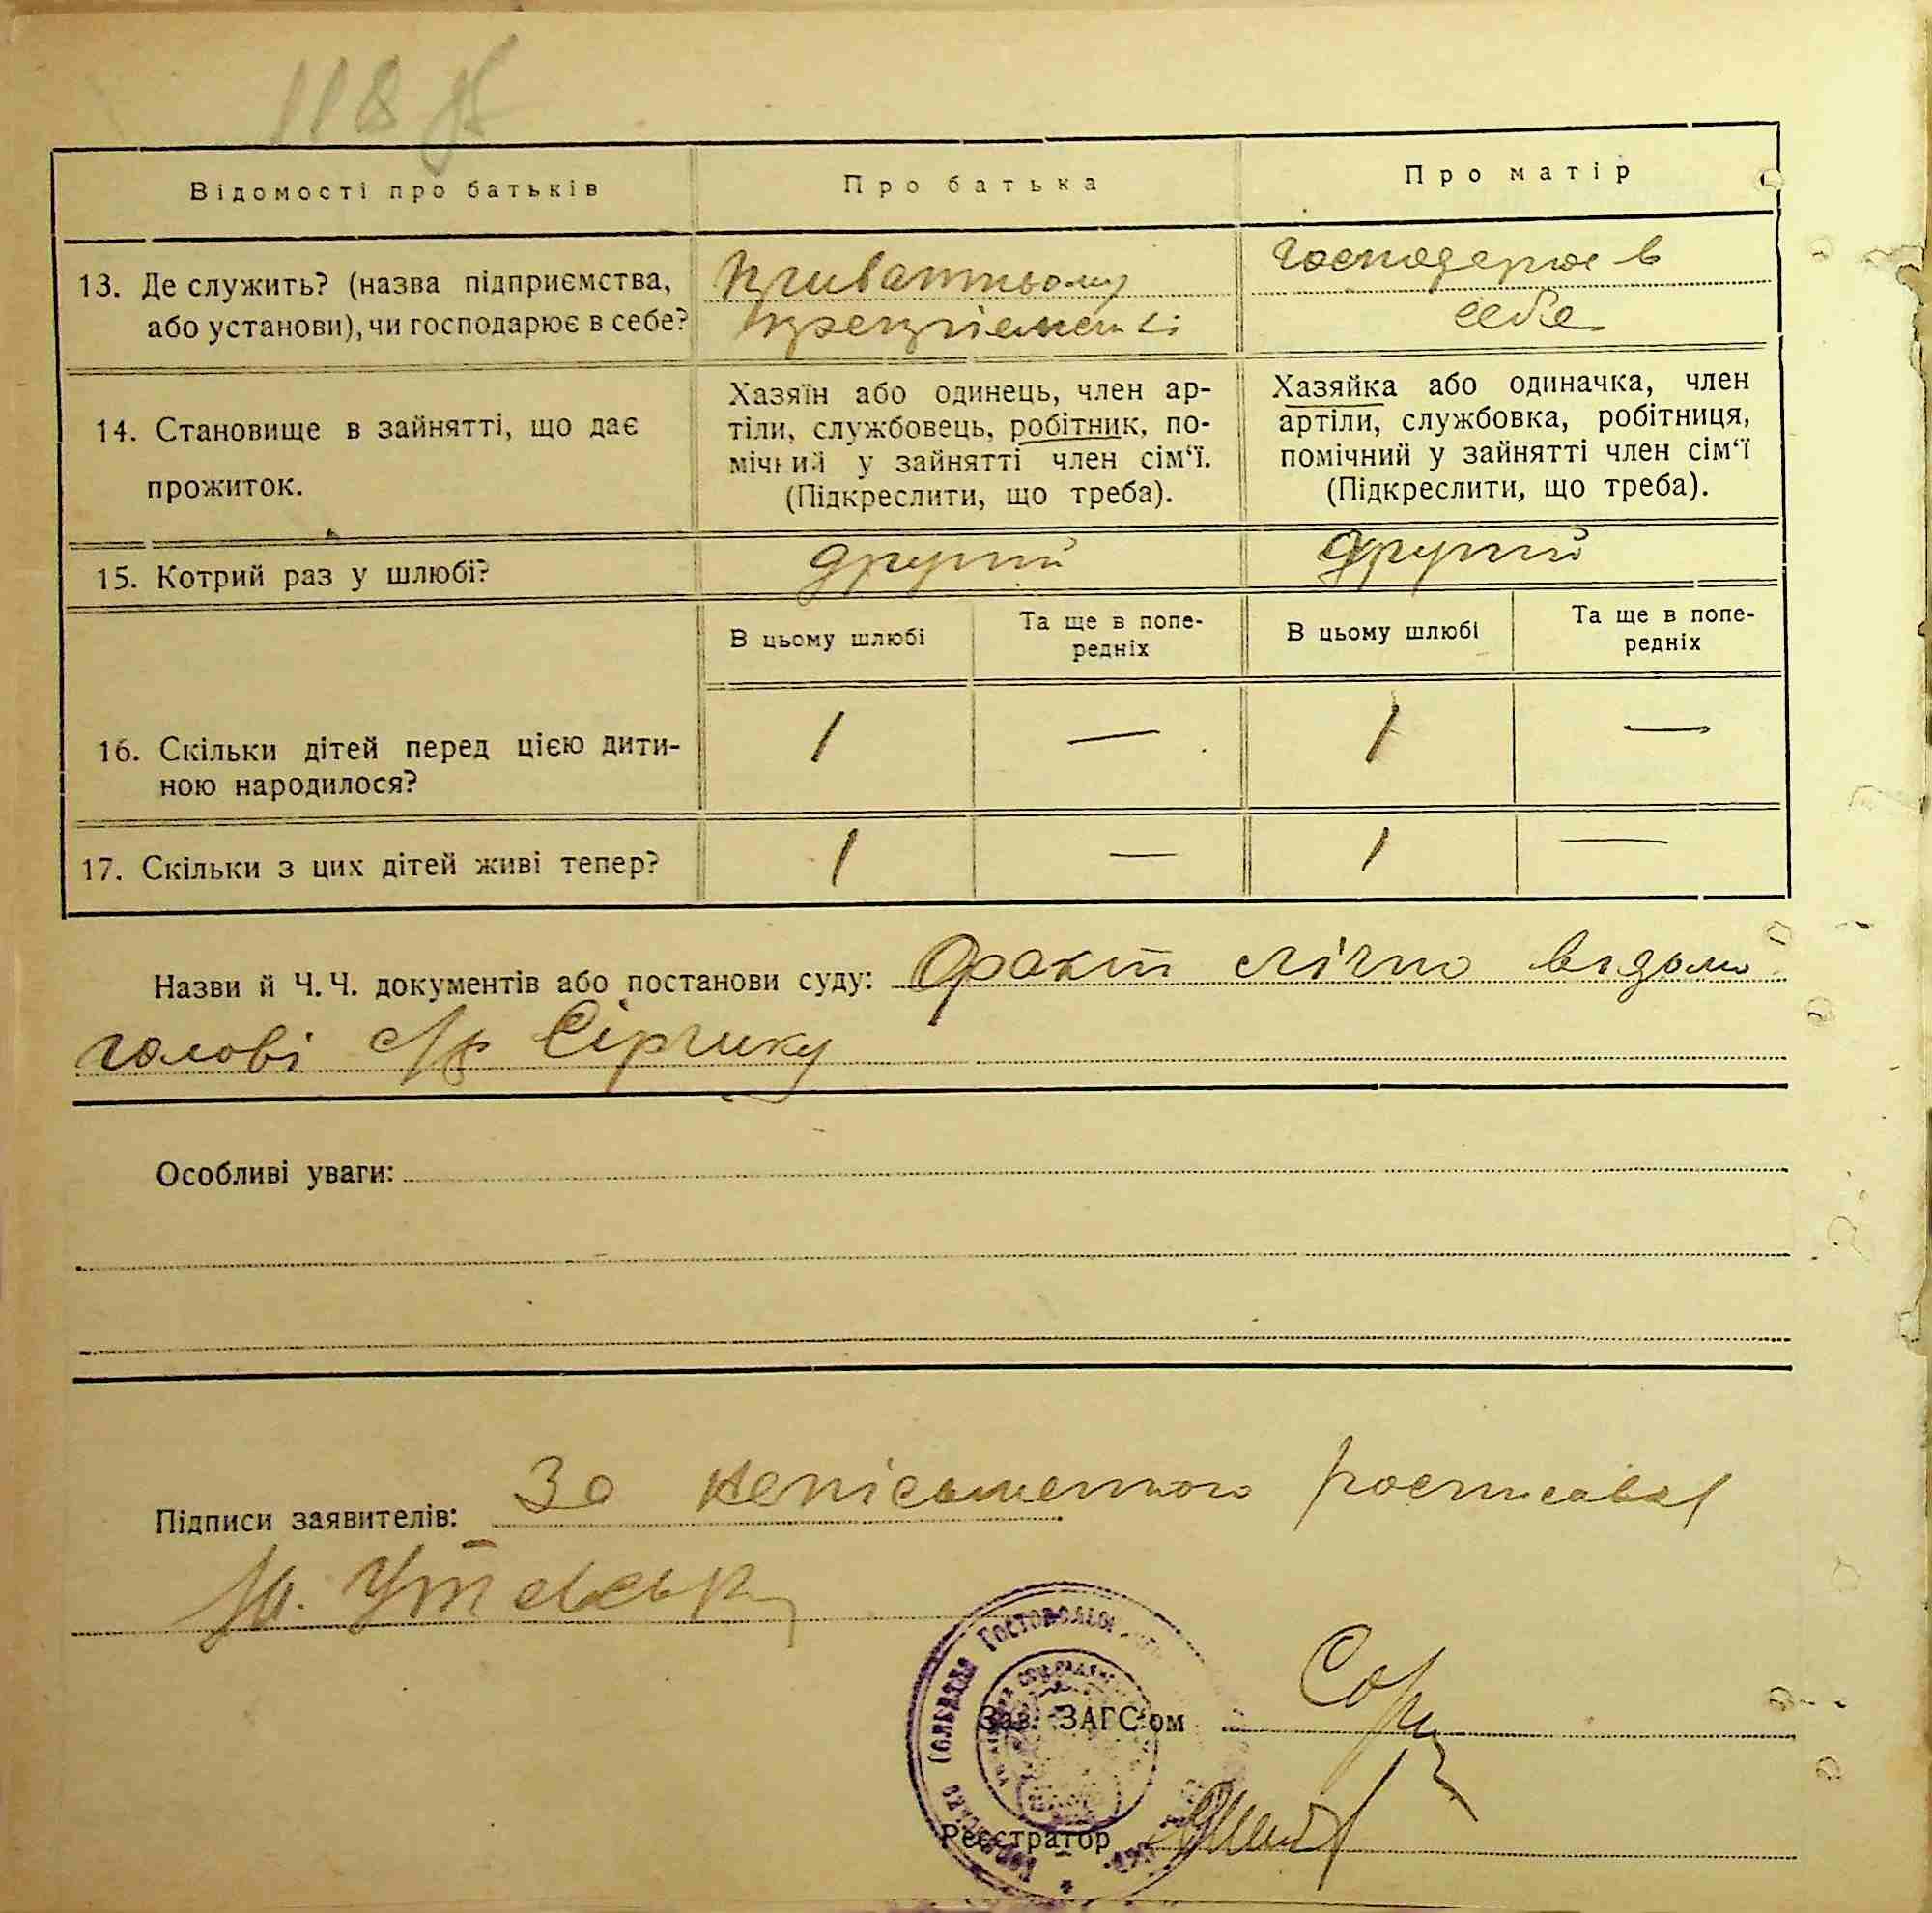 118
Відомості про батьків
Про батька
Про матір
13. Де служить? (назва підприємства,
або установи), чи господарює в себе?
приватньому
господарює в
себе
14. Становище в зайнятті, що дає
прожиток.
Хазяїн або одинець, член ар-
тілі, службовець, робітник, по-
мічний у зайнятті член сім‘ї.
(Підкреслити, що треба).
Хазяйка або одиначка, член
артілі, службовка, робітниця,
помічний у зайнятті член сім‘ї
(Підкреслити, що треба).
15. Котрий раз у шлюбі?
другий
другий
В цьому шлюбі
Та ще в попе-
редніх
В цьому шлюбі
Та ще в попе-
редніх
16. Скільки дітей перед цією дити-
ною народилося?
1 — 1 —
17. Скільки з цих дітей живі тепер?
1 — 1 —
Назви й Ч. Ч. документів або постанови суду: Факт лічно відомо
голові с/р Сірчику
Особливі уваги:
Підписи заявителів: За непісьменного росписавсь
Зав. ЗАГС‘ом
Реєстратор